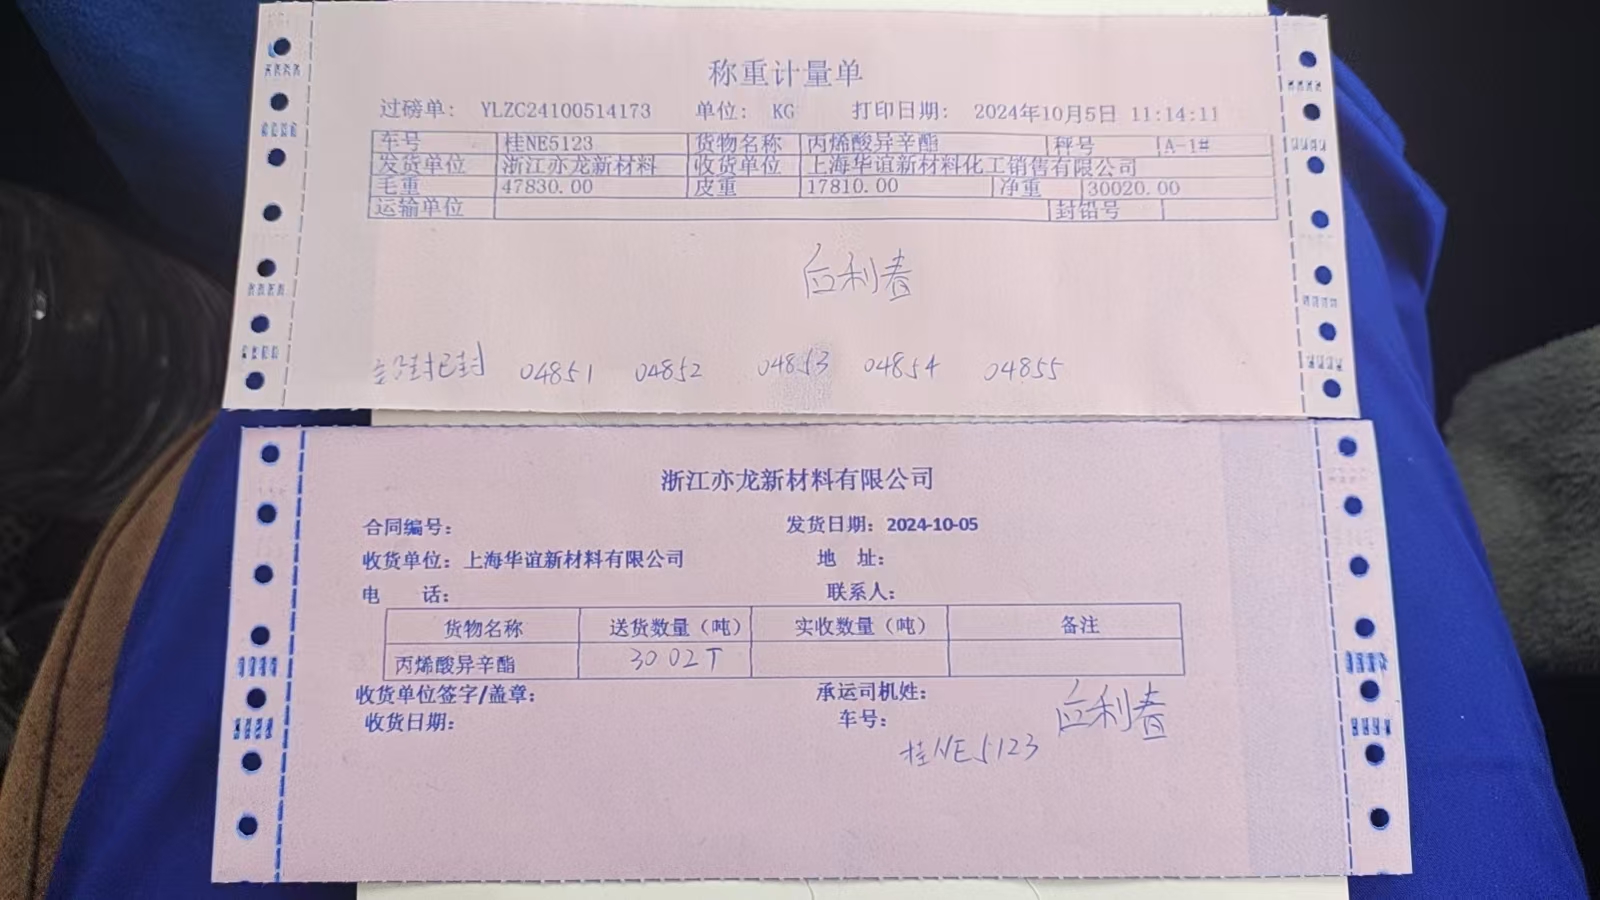 称重计量单
过磅单: YLZC24100514173 单位: KG 打印日期: 2024年10月5日 11:14:11
车号 桂NE5123 货物名称 丙烯酸异辛酯 秤号 A-1#
发货单位 浙江亦龙新材料 收货单位 上海华谊新材料化工销售有限公司
毛重 47830.00 皮重 17810.00 净重 30020.00
运输单位 封铅号
利春
封已封 04851 04852 04853 04854 04855
浙江亦龙新材料有限公司
合同编号: 发货日期: 2024-10-05
收货单位: 上海华谊新材料有限公司 地 址:
电 话: 联系人:
货物名称 送货数量（吨） 实收数量（吨） 备注
丙烯酸异辛酯 30 02T
收货单位签字/盖章: 承运司机姓: 利春
收货日期: 车号: 桂NE5123